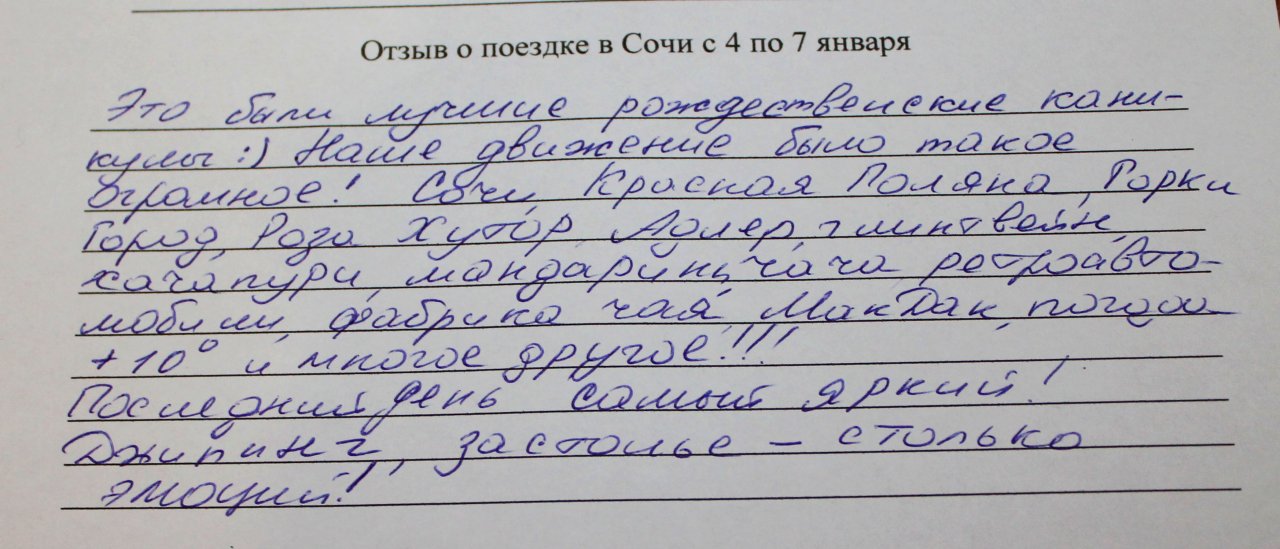 Отзыв о поездке в Сочи с 4 по 7 января
Это были лучшие рождественские кани-
кулы :) Наше движение было такое
огромное! Сочи, Красная Поляна, Горки
Город, Роза Хутор, Адлер, глинтвейн,
хачапури, мандарины, чача, ретроавто-
мобили, фабрика чая, МакДак, погода
+10° и многое другое!!!
Последний день самый яркий!
Джипинг, застолье – столько
эмоций!